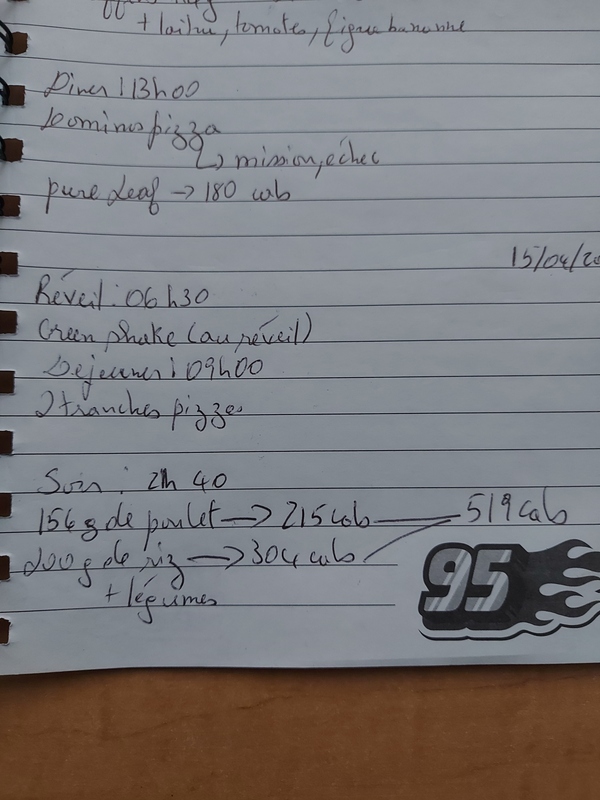 + laitue, tomates, figue banane
Diner : 13h00
Dominos pizza
↳ mission, échec
pure Leaf → 180 cab
15/04/20
Réveil : 06h30
Green shake (au réveil)
Dejeuner : 09h00
2 tranches pizzas
Soir : 21h 40
156 g de poulet → 215 cab 519 cab
200 g de riz → 304 cab
+ légumes
95